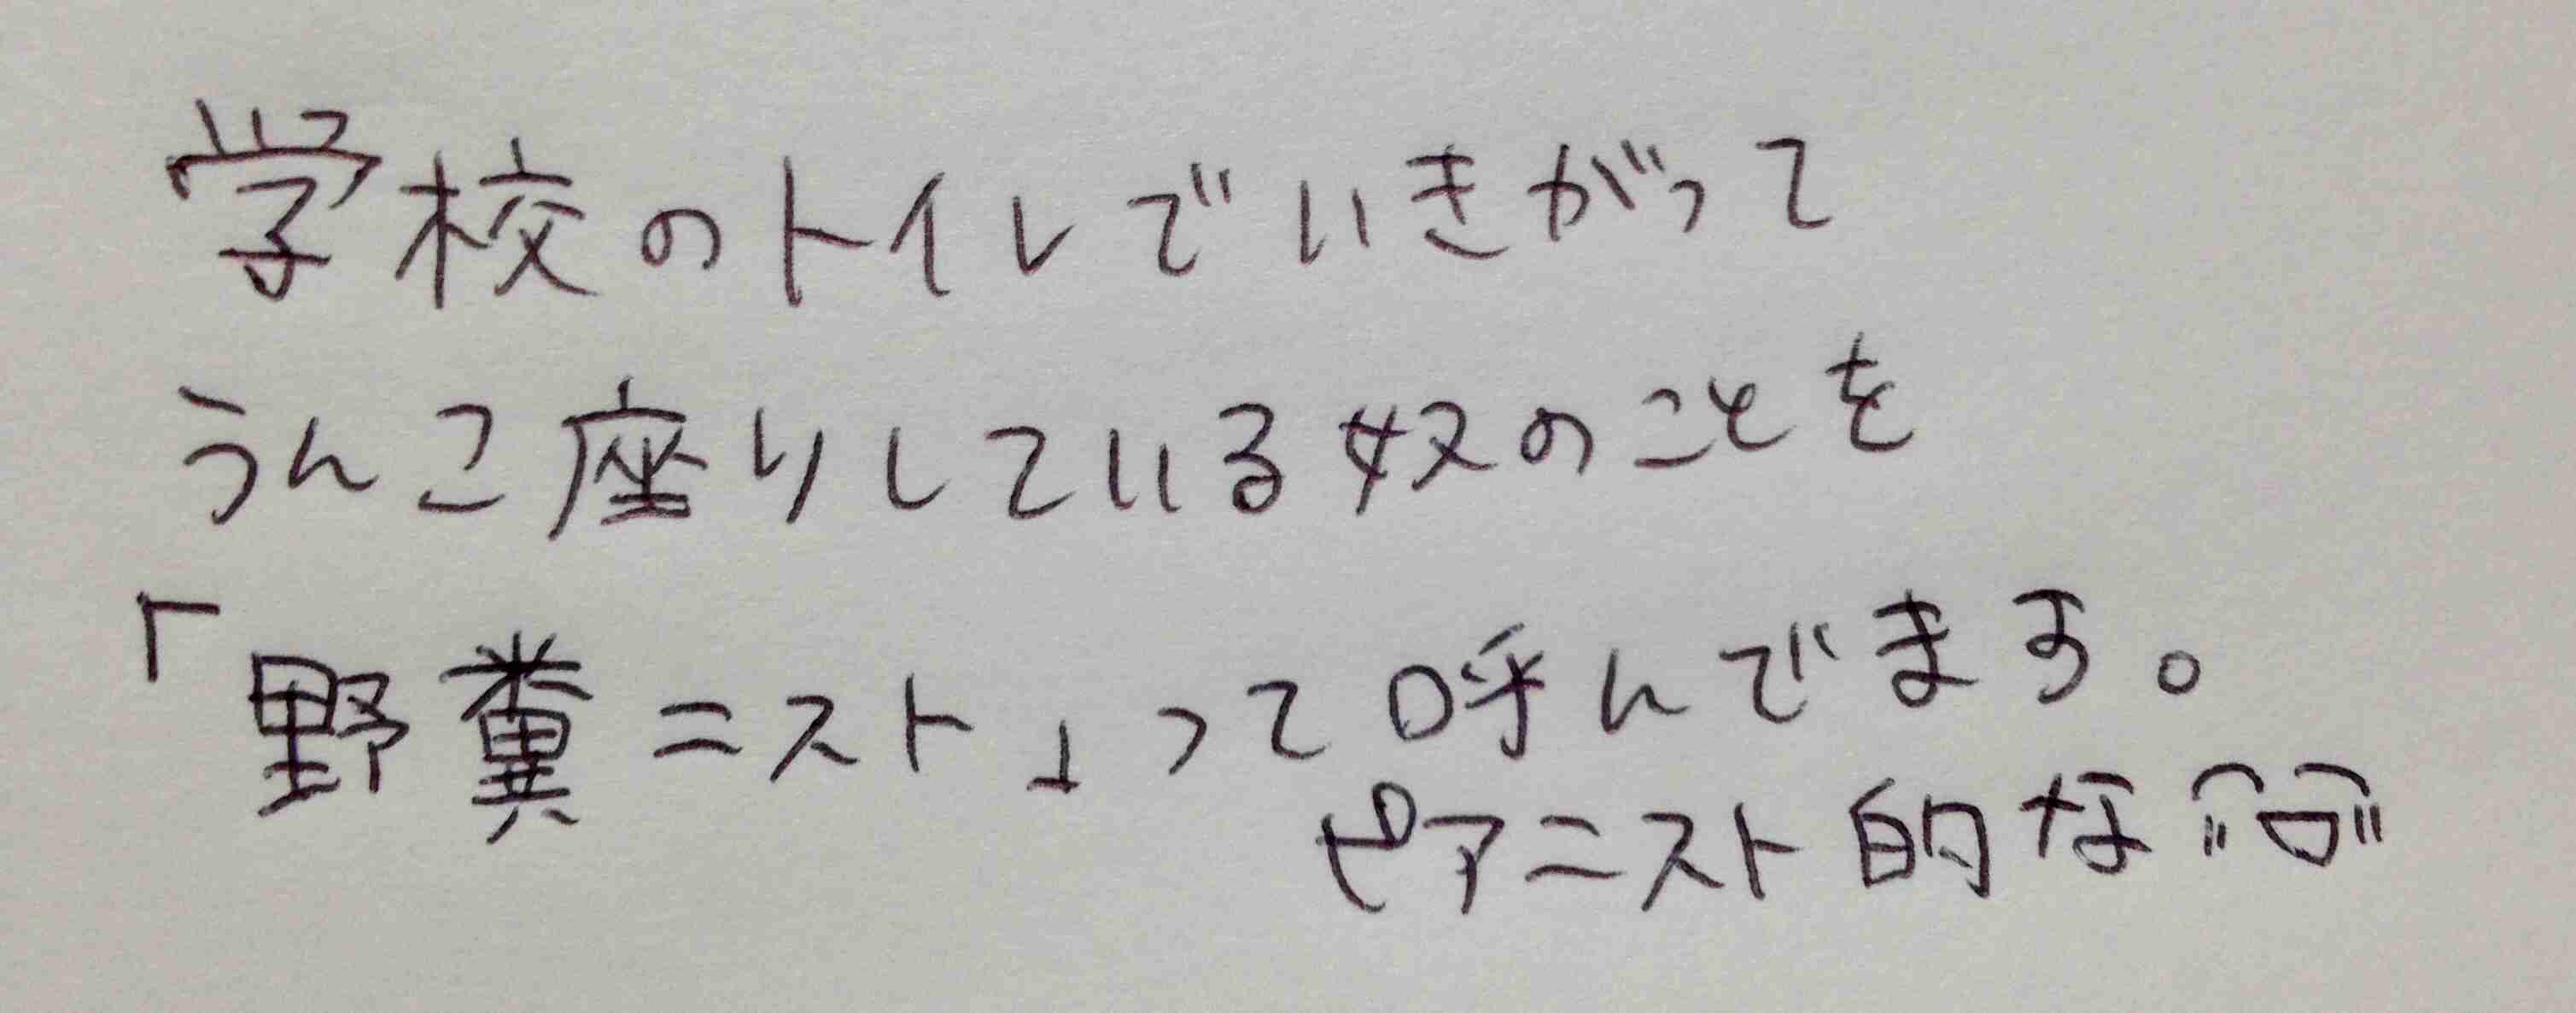 学校のトイレでいきがって
うんこ座りしている奴のことを
「野糞ニスト」って呼んでます。
ピアニスト的な